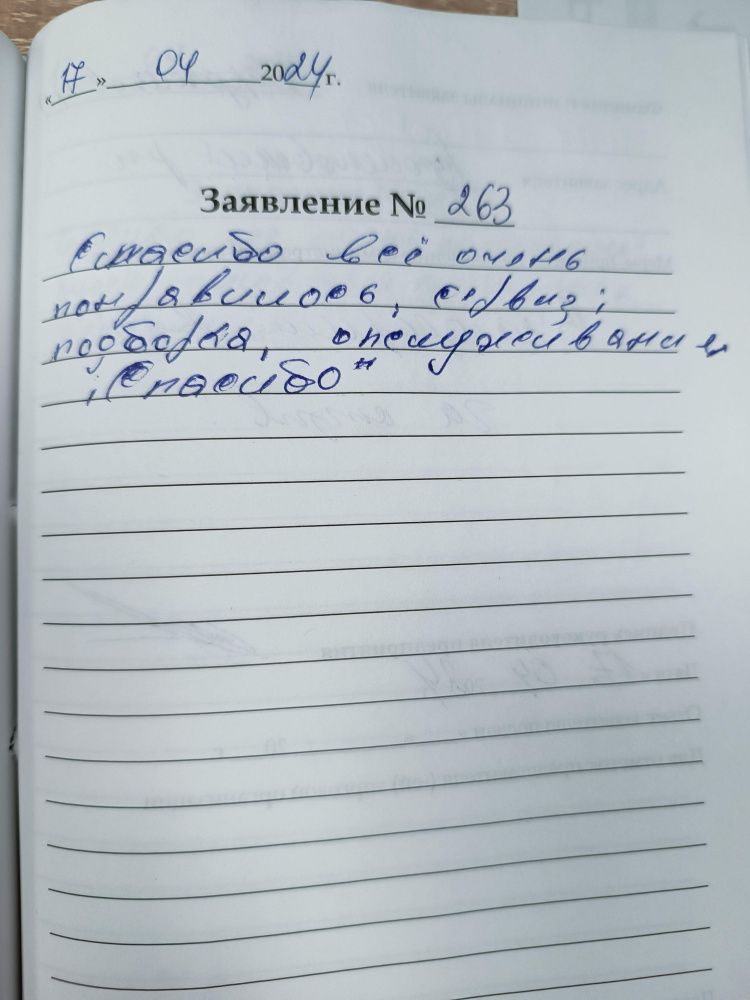 «17» 04 2024 г.
Заявление № 263
Спасибо всё очень
понравилось, сервиз;
подборка, опслуживания
"Спасибо"